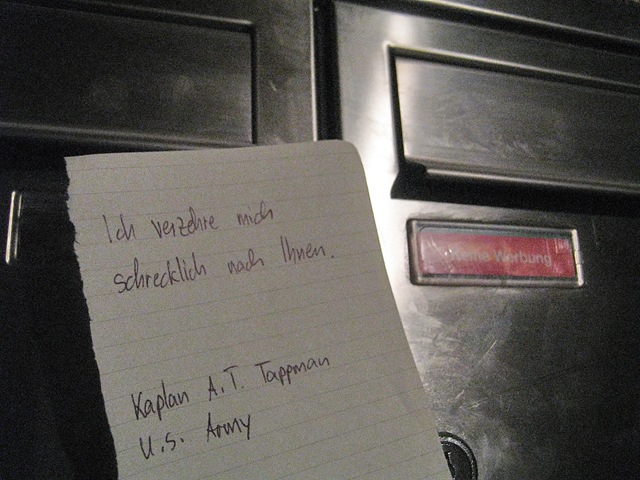 Ich verzehre mich
schrecklich nach Ihnen.
Kaplan A.T. Tappman
U.S. Army
Keine Werbung